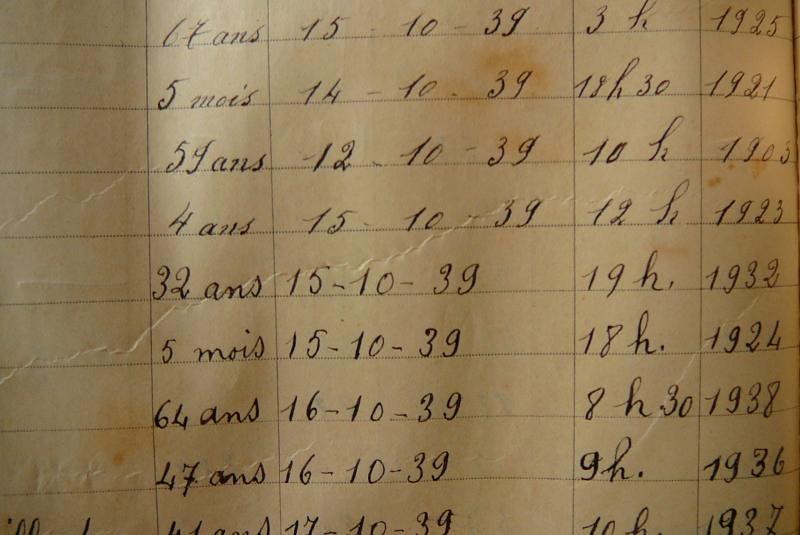 67 ans 15 - 10 - 39 3 h 1925
5 mois 14 - 10 - 39 18h 30 1921
59 ans 12 - 10 - 39 10 h 1903
4 ans 15 - 10 - 39 12 h 1923
32 ans 15-10-39 19 h. 1932
5 mois 15-10-39 18 h. 1924
64 ans 16-10-39 8 h 30 1938
47 ans 16-10-39 9h. 1936
41 ans 17-10-39 10 h. 1937